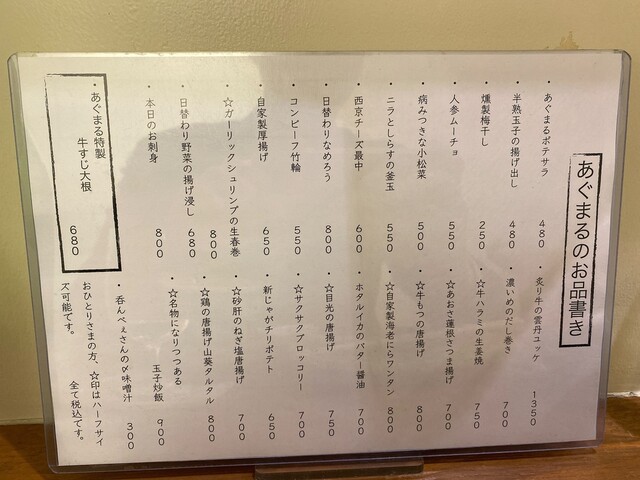 あぐまるのお品書き
・あぐまるポテサラ 480
・半熟玉子の揚げ出し 480
・燻製梅干し 250
・人参ムーチョ 550
・病みつきな小松菜 500
・ニラとしらすの釜玉 550
・西京チーズ最中 600
・日替わりなめろう 800
・コンビーフ竹輪 550
・自家製厚揚げ 650
・☆ガーリックシュリンプの生春巻 800
・日替わり野菜の揚げ浸し 680
・本日のお刺身 800
・あぐまる特製
牛すじ大根 680
・炙り牛の雲丹ユッケ 1350
・濃いめのだし巻き 700
・☆牛ハラミの生姜焼 750
・☆あおさ蓮根さつま揚げ 700
・☆牛もつの唐揚げ 800
・☆自家製海老にらワンタン 800
・ホタルイカのバター醤油 700
・☆目光の唐揚げ 750
・☆サクサクブロッコリー 700
・新じゃがチリポテト 650
・☆砂肝のねぎ塩唐揚げ 700
・☆鶏の唐揚げ山葵タルタル 800
・☆名物になりつつある
玉子炒飯 900
・呑んべぇさんの〆味噌汁 300
おひとりさまの方、☆印はハーフサイ
ズ可能です。 全て税込です。